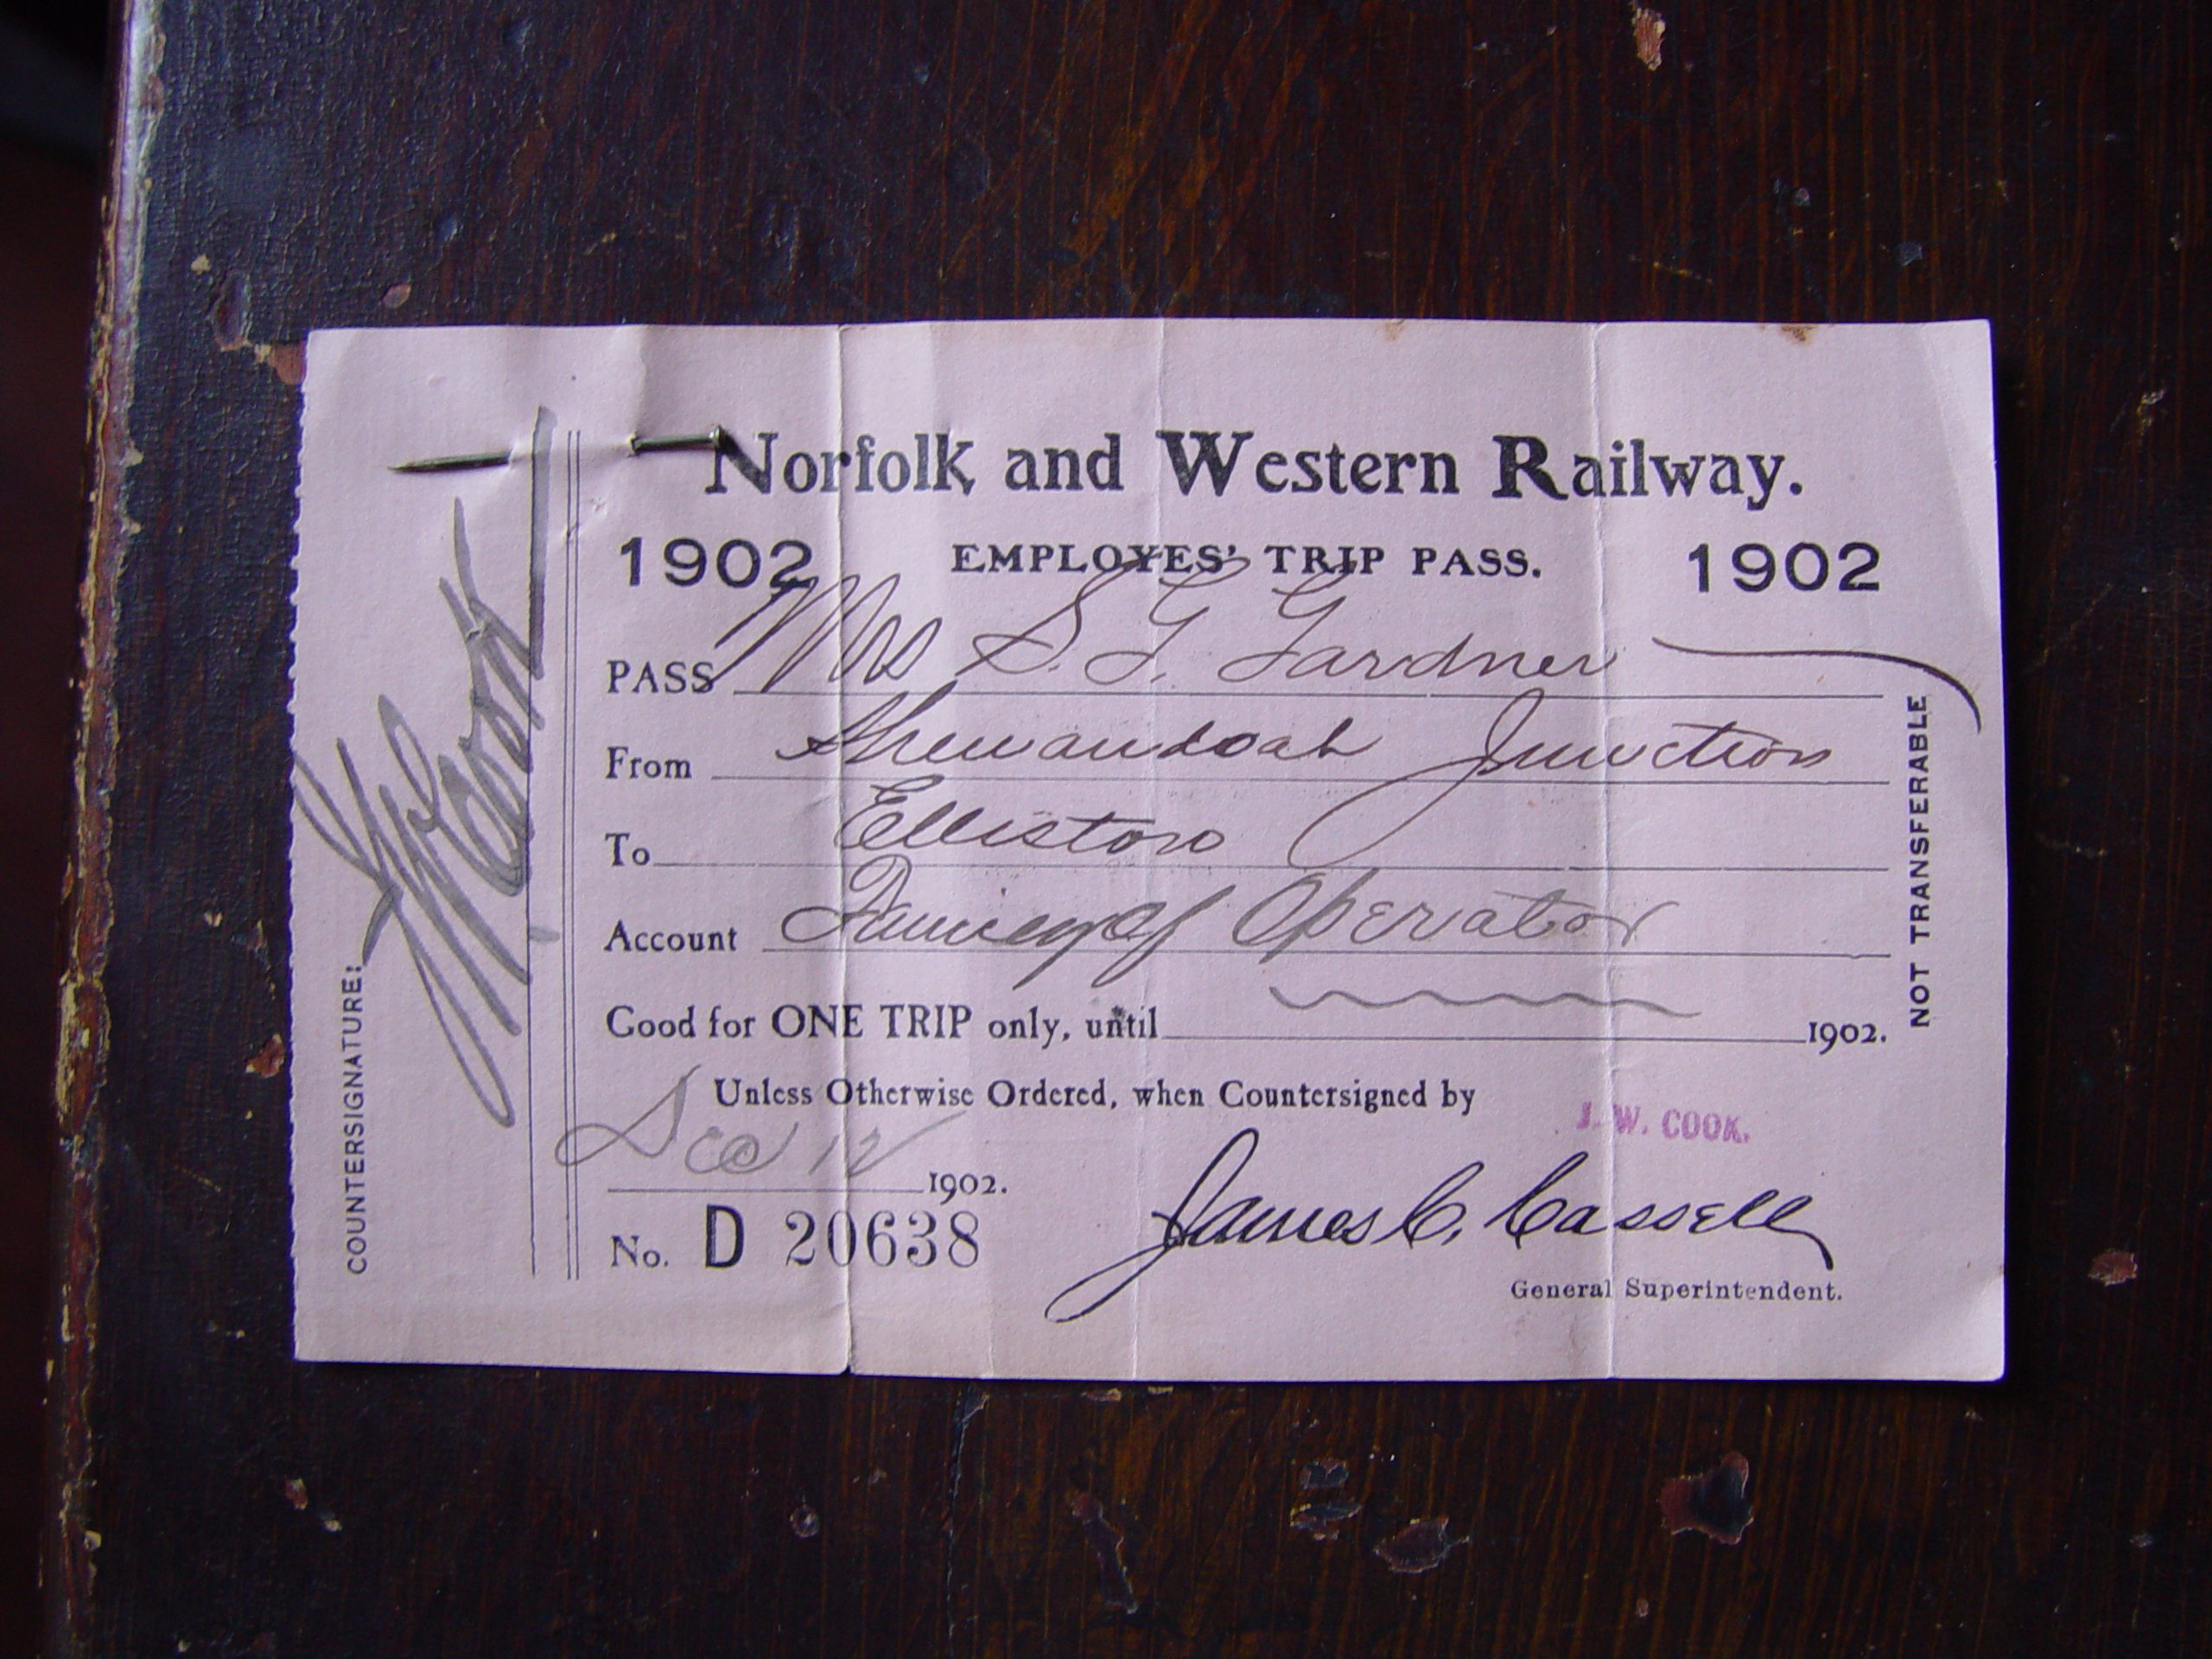 Norfolk and Western Railway.
1902 EMPLOYES' TRIP PASS. 1902
PASS Mrs S. G. Gardner
From Shenandoah Junction
To Elliston
Account Family of Operator
Good for ONE TRIP only, until 1902.
Unless Otherwise Ordered, when Countersigned by
J. W. COOK.
Dec 12 1902.
No. D 20638
James C. Cassell
General Superintendent.
COUNTERSIGNATURE: JW Cook
NOT TRANSFERABLE